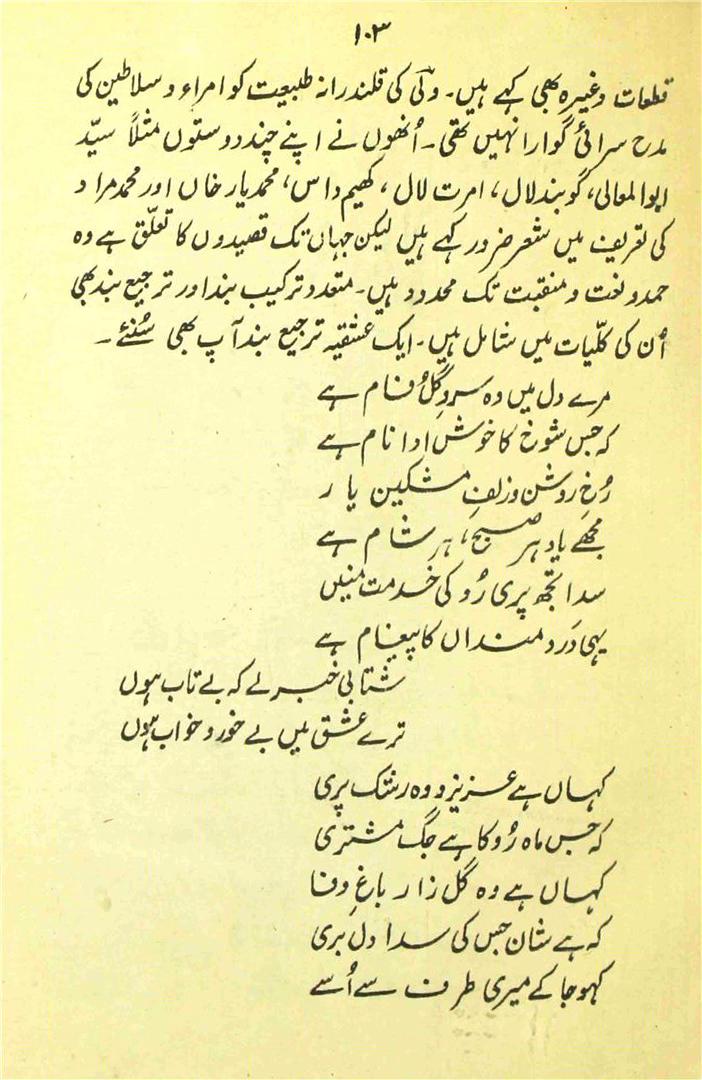 ۱۰۳
قطعات وغیرہ بھی کہے ہیں۔ ولیؔ کی قلندرانہ طبیعت کو امراء و سلاطین کی
مدح سرائی گوارا نہیں تھی۔ اُنھوں نے اپنے چند دوستوں مثلاً سیّد
ابوالمعالی، گوبند لال، امرت لال، کھیم داس، محمد یار خاں اور محمد مراد
کی تعریف میں شعر ضرور کہے ہیں لیکن جہاں تک قصیدوں کا تعلّق ہے وہ
حمد و نعت و منقبت تک محدود ہیں۔ متعدد ترکیب بند اور ترجیع بند بھی
اُن کی کلّیات میں شامل ہیں۔ ایک عشقیہ ترجیع بند آپ بھی سُنئے۔
مرے دل میں وہ سروِ گُل فام ہے
کہ جس شوخ کا خوش ادا نام ہے
رُخِ روشن و زلفِ مشکین یار
مجھے یاد ہر صبح، ہر شام ہے
سدا تجھ پری رُو کی خدمت منیں
یہی دَرد منداں کا پیغام ہے
شتابی خبر لے کہ بے تاب ہوں
ترے عشق میں بے خور و خواب ہوں
کہاں ہے عزیزو وہ رشک پری
کہ جس ماہ رُو کا ہے جگ مشتری
کہاں ہے وہ گل زار باغِ وفا
کہ ہے شان جس کی سدا دل بری
کہو جا کے میری طرف سے اُسے